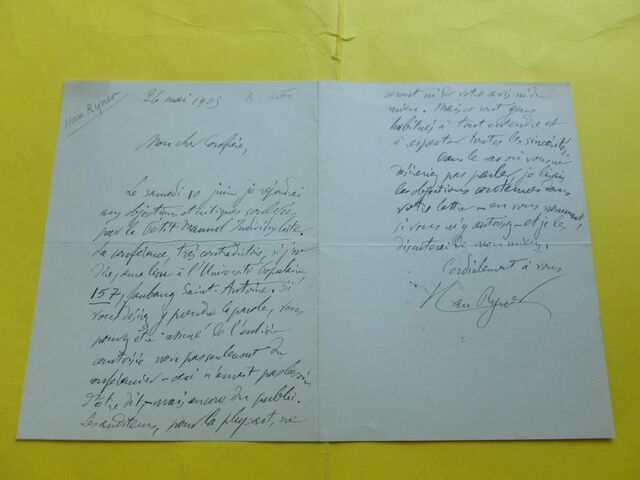 Han Ryner
26 mai 1905
Mon cher Confrère,
Le samedi 10 juin je répondrai
aux objections et critiques soulevées
par le Petit Manuel Individualiste.
La conférence, très contradictoire, si j'ose
dire, aura lieu à l'Université Populaire
157, faubourg Saint-Antoine. Si
vous désirez y prendre la parole, vous
pouvez être assuré de l'entière
courtoisie non pas seulement du
conférencier – ceci n'aurait pas besoin
d'être dit, – mais encore du public.
Les auditeurs, pour la plupart, ne
seront ni de votre avis ni du
mien. Mais ce sont gens
habitués à tout entendre et
à respecter toutes les sincérités.
Dans le cas où vous ne
désireriez pas parler, je lirais
les objections contenues dans
votre lettre – en vous nommant,
si vous m'y autorisez – et je les
discuterai de mon mieux.
Cordialement à vous
Han Ryner